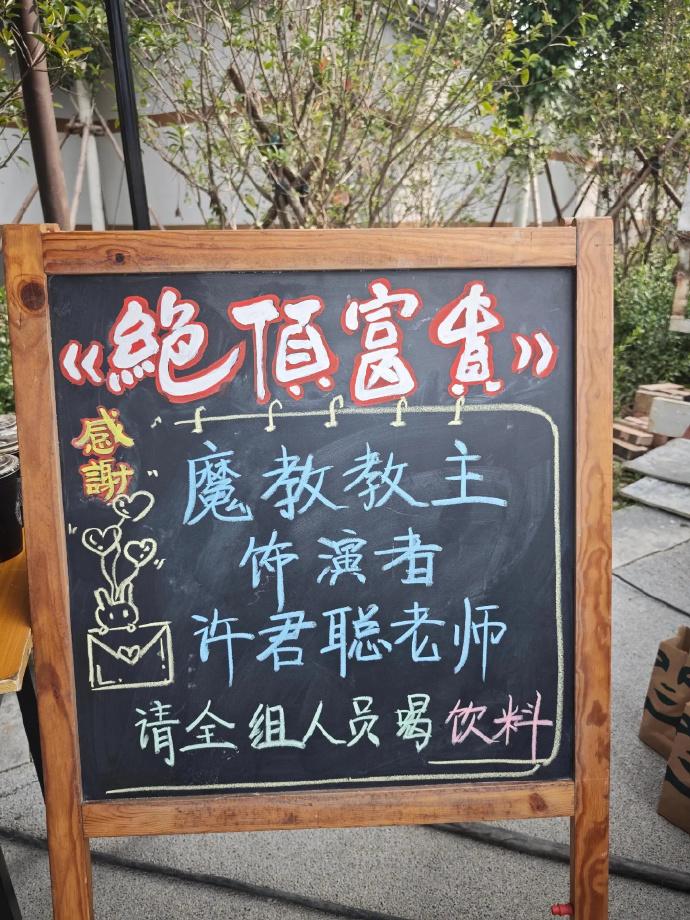 《絕頂富貴》
感謝
魔教教主
饰演者
许君聪老师
请全组人员喝饮料